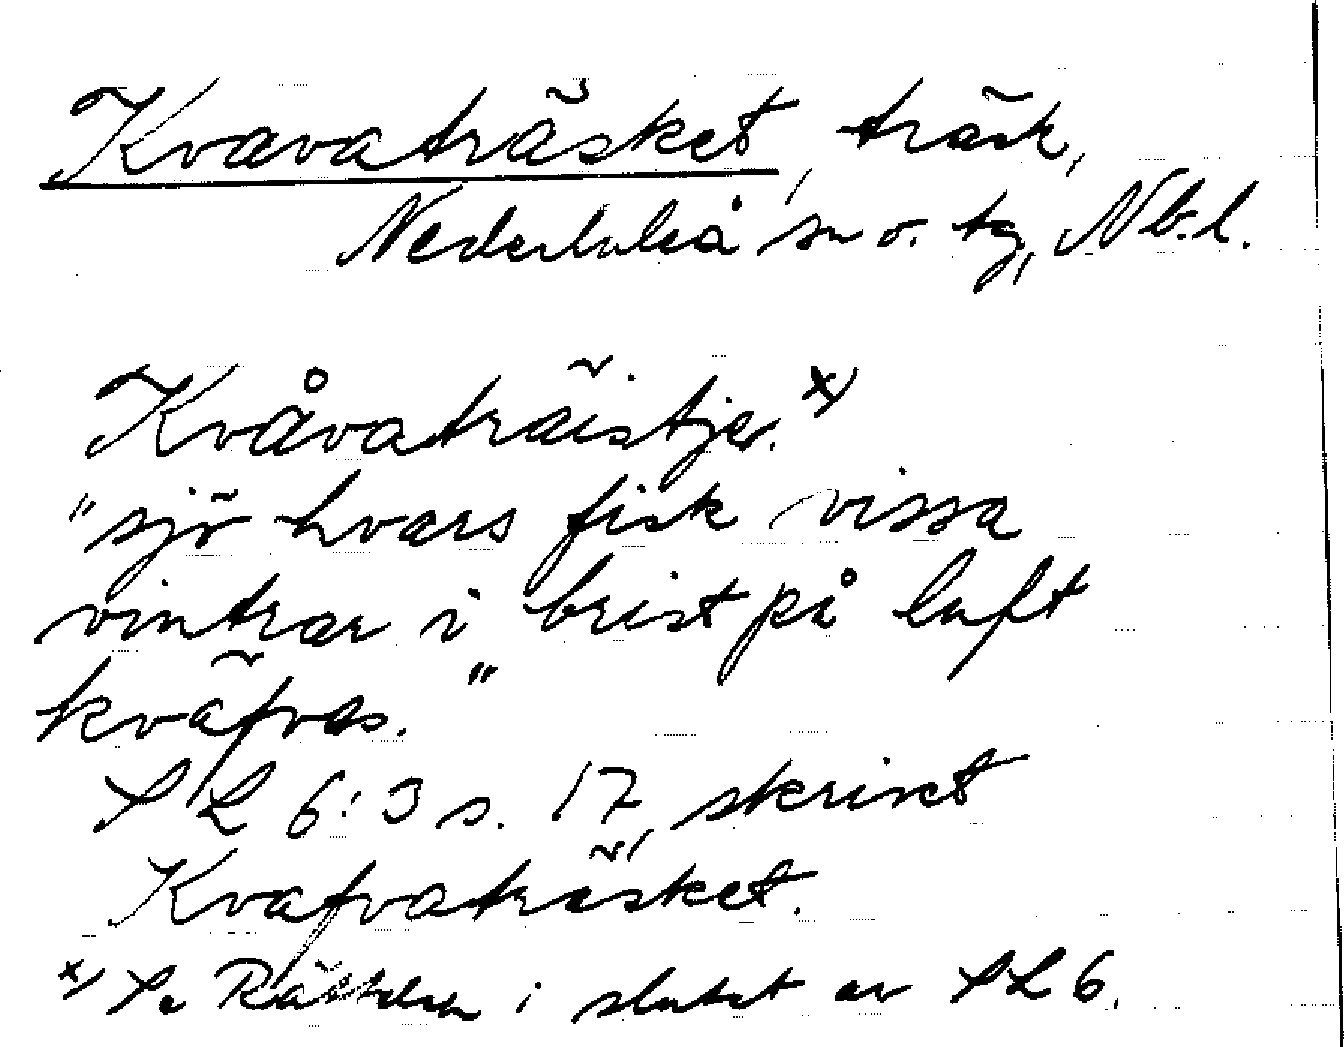 Kvavaträsket, träsk,
Nederluleå sn o. tg, Nb.l.
Kvåvaträistjer. x)
"sjö hvars fisk vissa
vintrar i brist på luft
kväfvas."
SL 6:3 s. 17, skrivet
Kvafvaträsket.
x) Se Rättelser i slutet av SL 6.